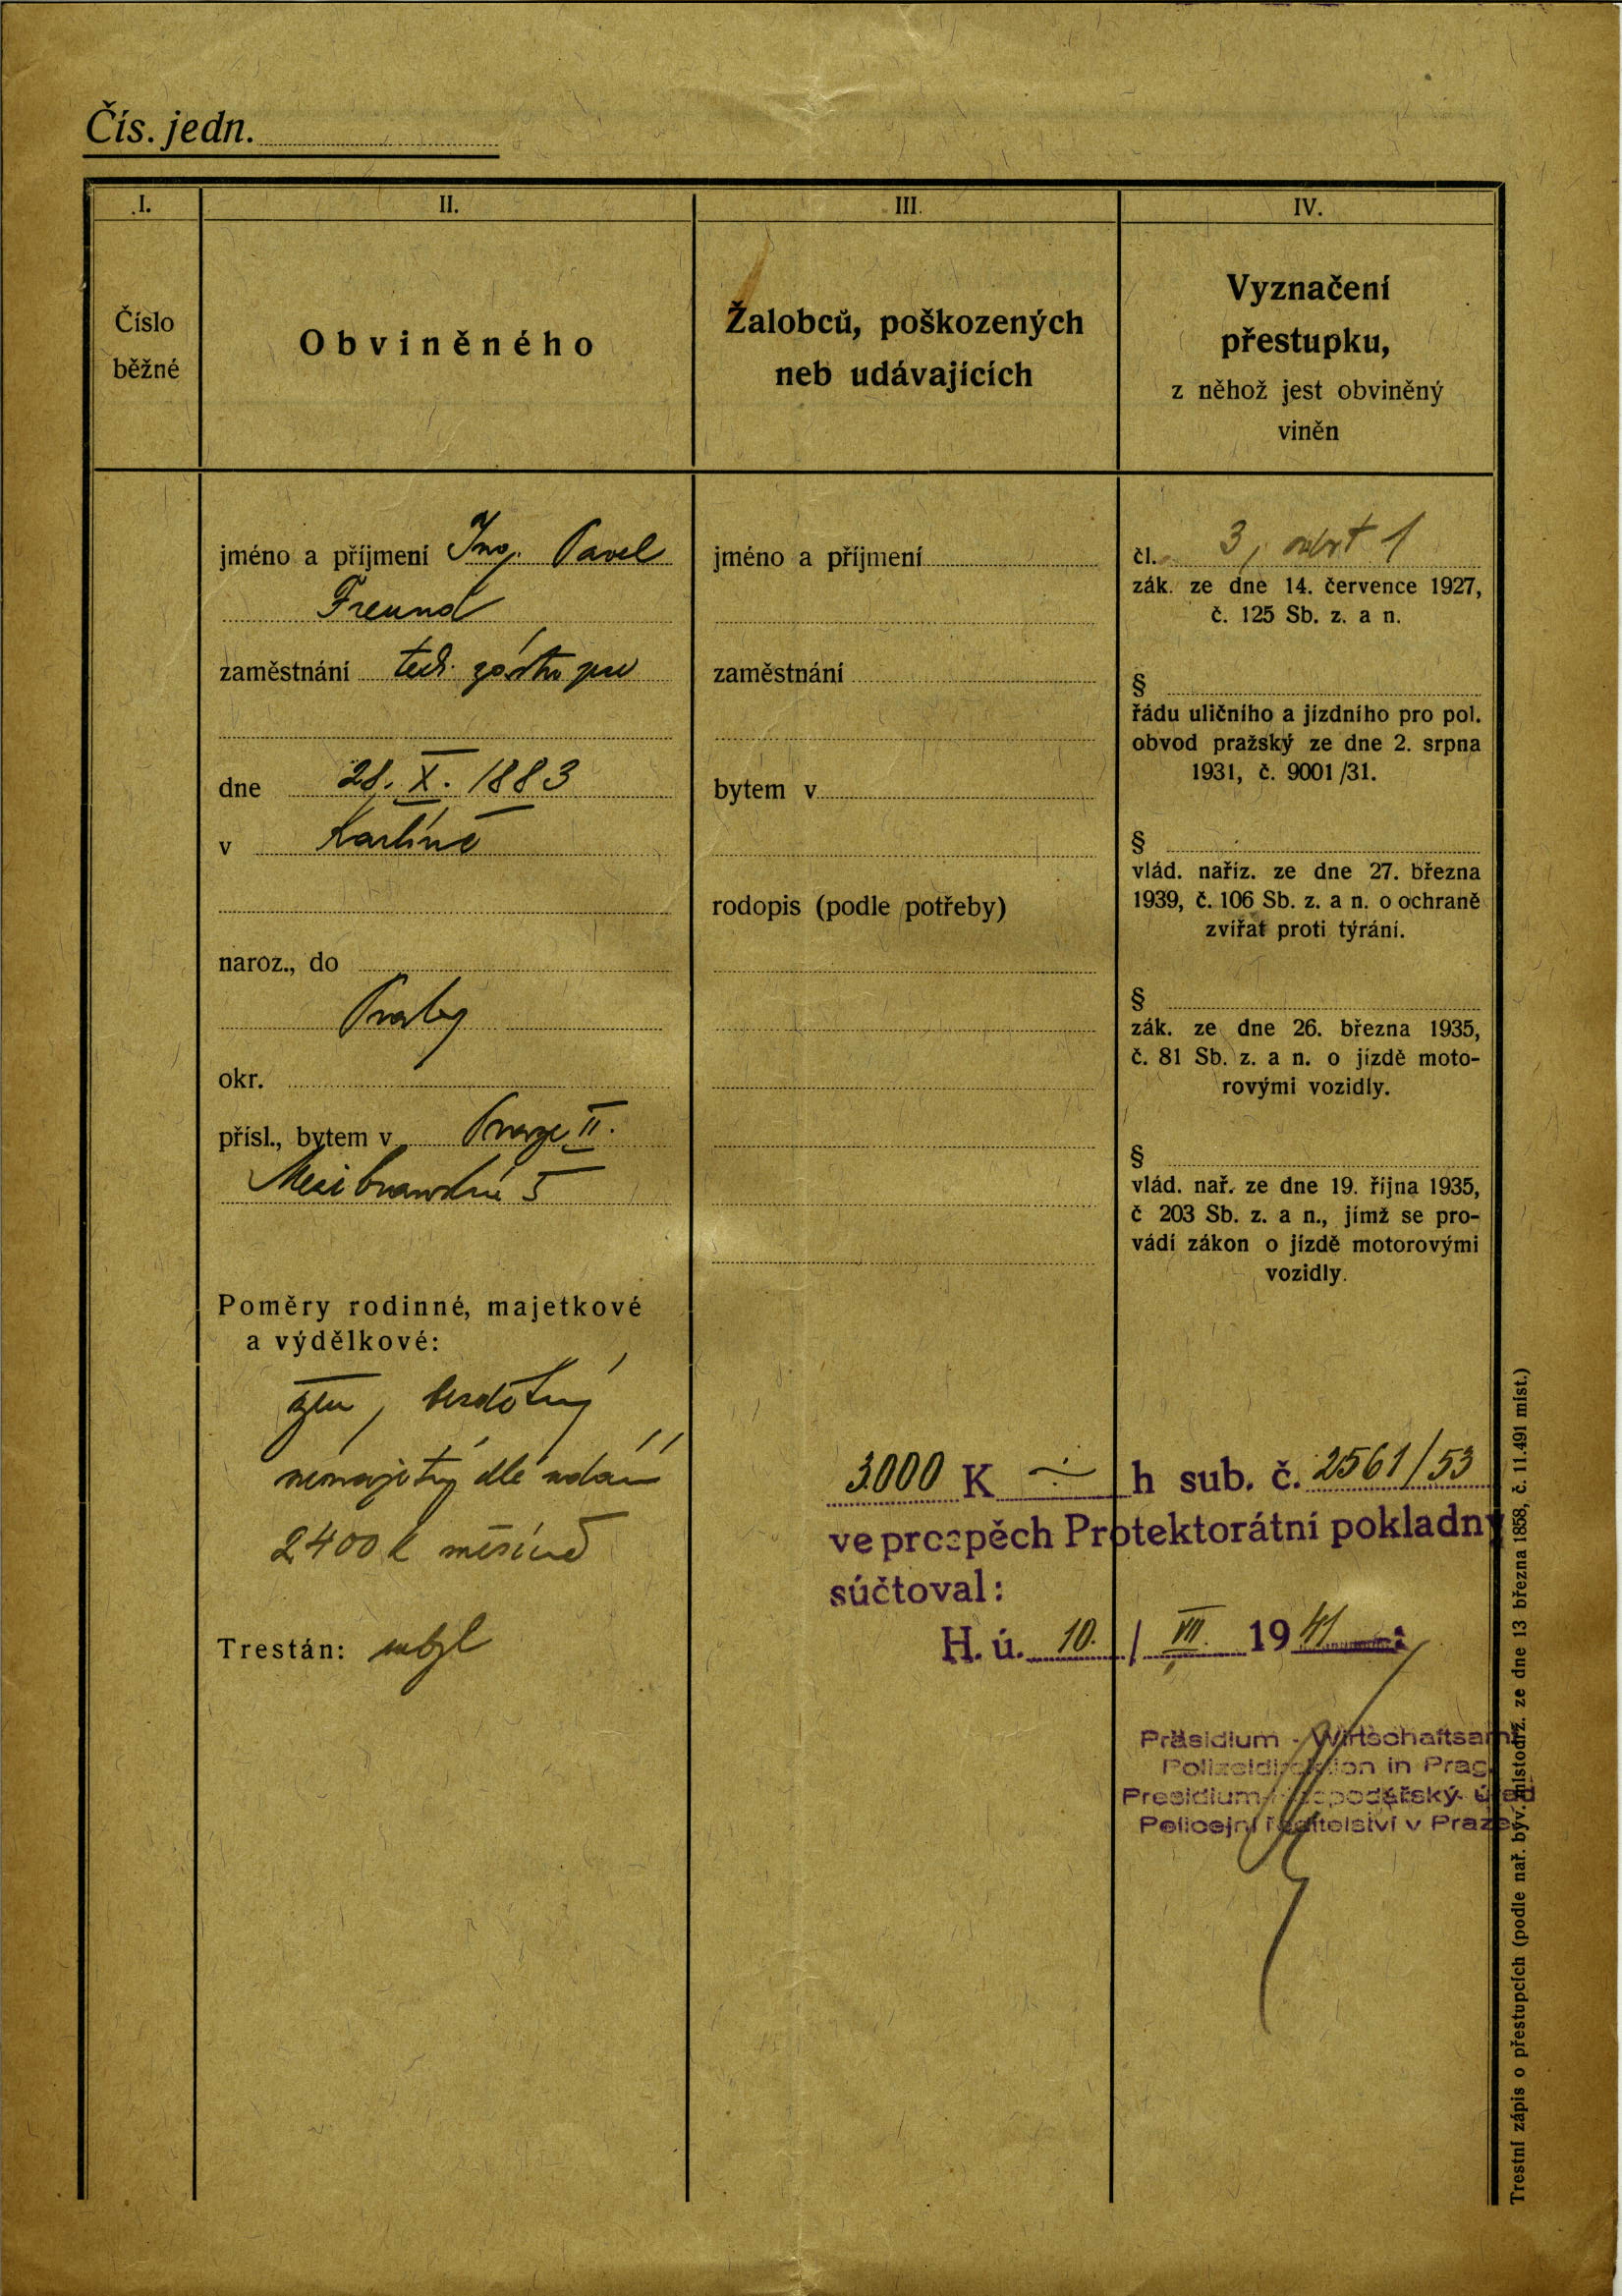 Čís. jedn.
I.
II.
III.
IV.
Číslo
běžné
Obviněného
Žalobců, poškozených
neb udávajících
Vyznačení
přestupku,
z něhož jest obviněný
viněn
jméno a příjmení Ing. Pavel
Freund
zaměstnání tech.
dne 28. X. 1883
v Karlíně
naroz., do
Prahy
okr.
přísl., bytem v Praze II.
5
Poměry rodinné, majetkové
a výdělkové:
žen, bezdětný
nemajetný dle udání
2400 K měsíčně
Trestán:
jméno a příjmení
zaměstnání
bytem v
rodopis (podle potřeby)
čl. 3, odst 1
zák. ze dne 14. července 1927,
č. 125 Sb. z. a n.
§
řádu uličního a jízdního pro pol.
obvod pražský ze dne 2. srpna
1931, č. 9001/31.
§
vlád. naříz. ze dne 27. března
1939, č. 106 Sb. z. a n. o ochraně
zvířat proti týrání.
§
zák. ze dne 26. března 1935,
č. 81 Sb. z. a n. o jízdě moto-
rovými vozidly.
§
vlád. nař. ze dne 19. října 1935,
č 203 Sb. z. a n., jímž se pro-
vádí zákon o jízdě motorovými
vozidly.
3000 K ÷ h sub. č. 2561/53
ve prospěch Protektorátní pokladny
súčtoval:
H. ú. 10. / VII. 1941
Präsidium - Wirtschaftsamt
Polizeidirektion in Prag
Presidium - hospodářský úřad
Policejní ředitelství v Praze
Trestní zápis o přestupcích (podle nař. býv. místodrž. ze dne 13 března 1858, č. 11.491 míst.)